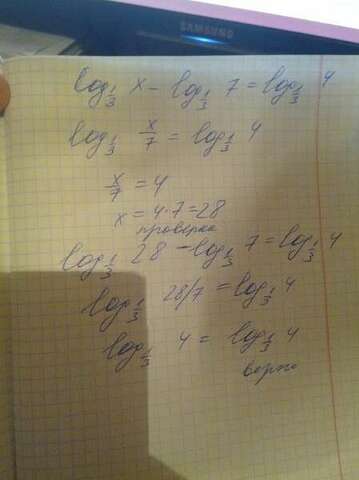 SAMSUNG
log_{1/3} x - log_{1/3} 7 = log_{1/3} 4
log_{1/3} x/7 = log_{1/3} 4
x/7 = 4
x = 4·7 = 28
проверка
log_{1/3} 28 - log_{1/3} 7 = log_{1/3} 4
log_{1/3} 28/7 = log_{1/3} 4
log_{1/3} 4 = log_{1/3} 4
верно